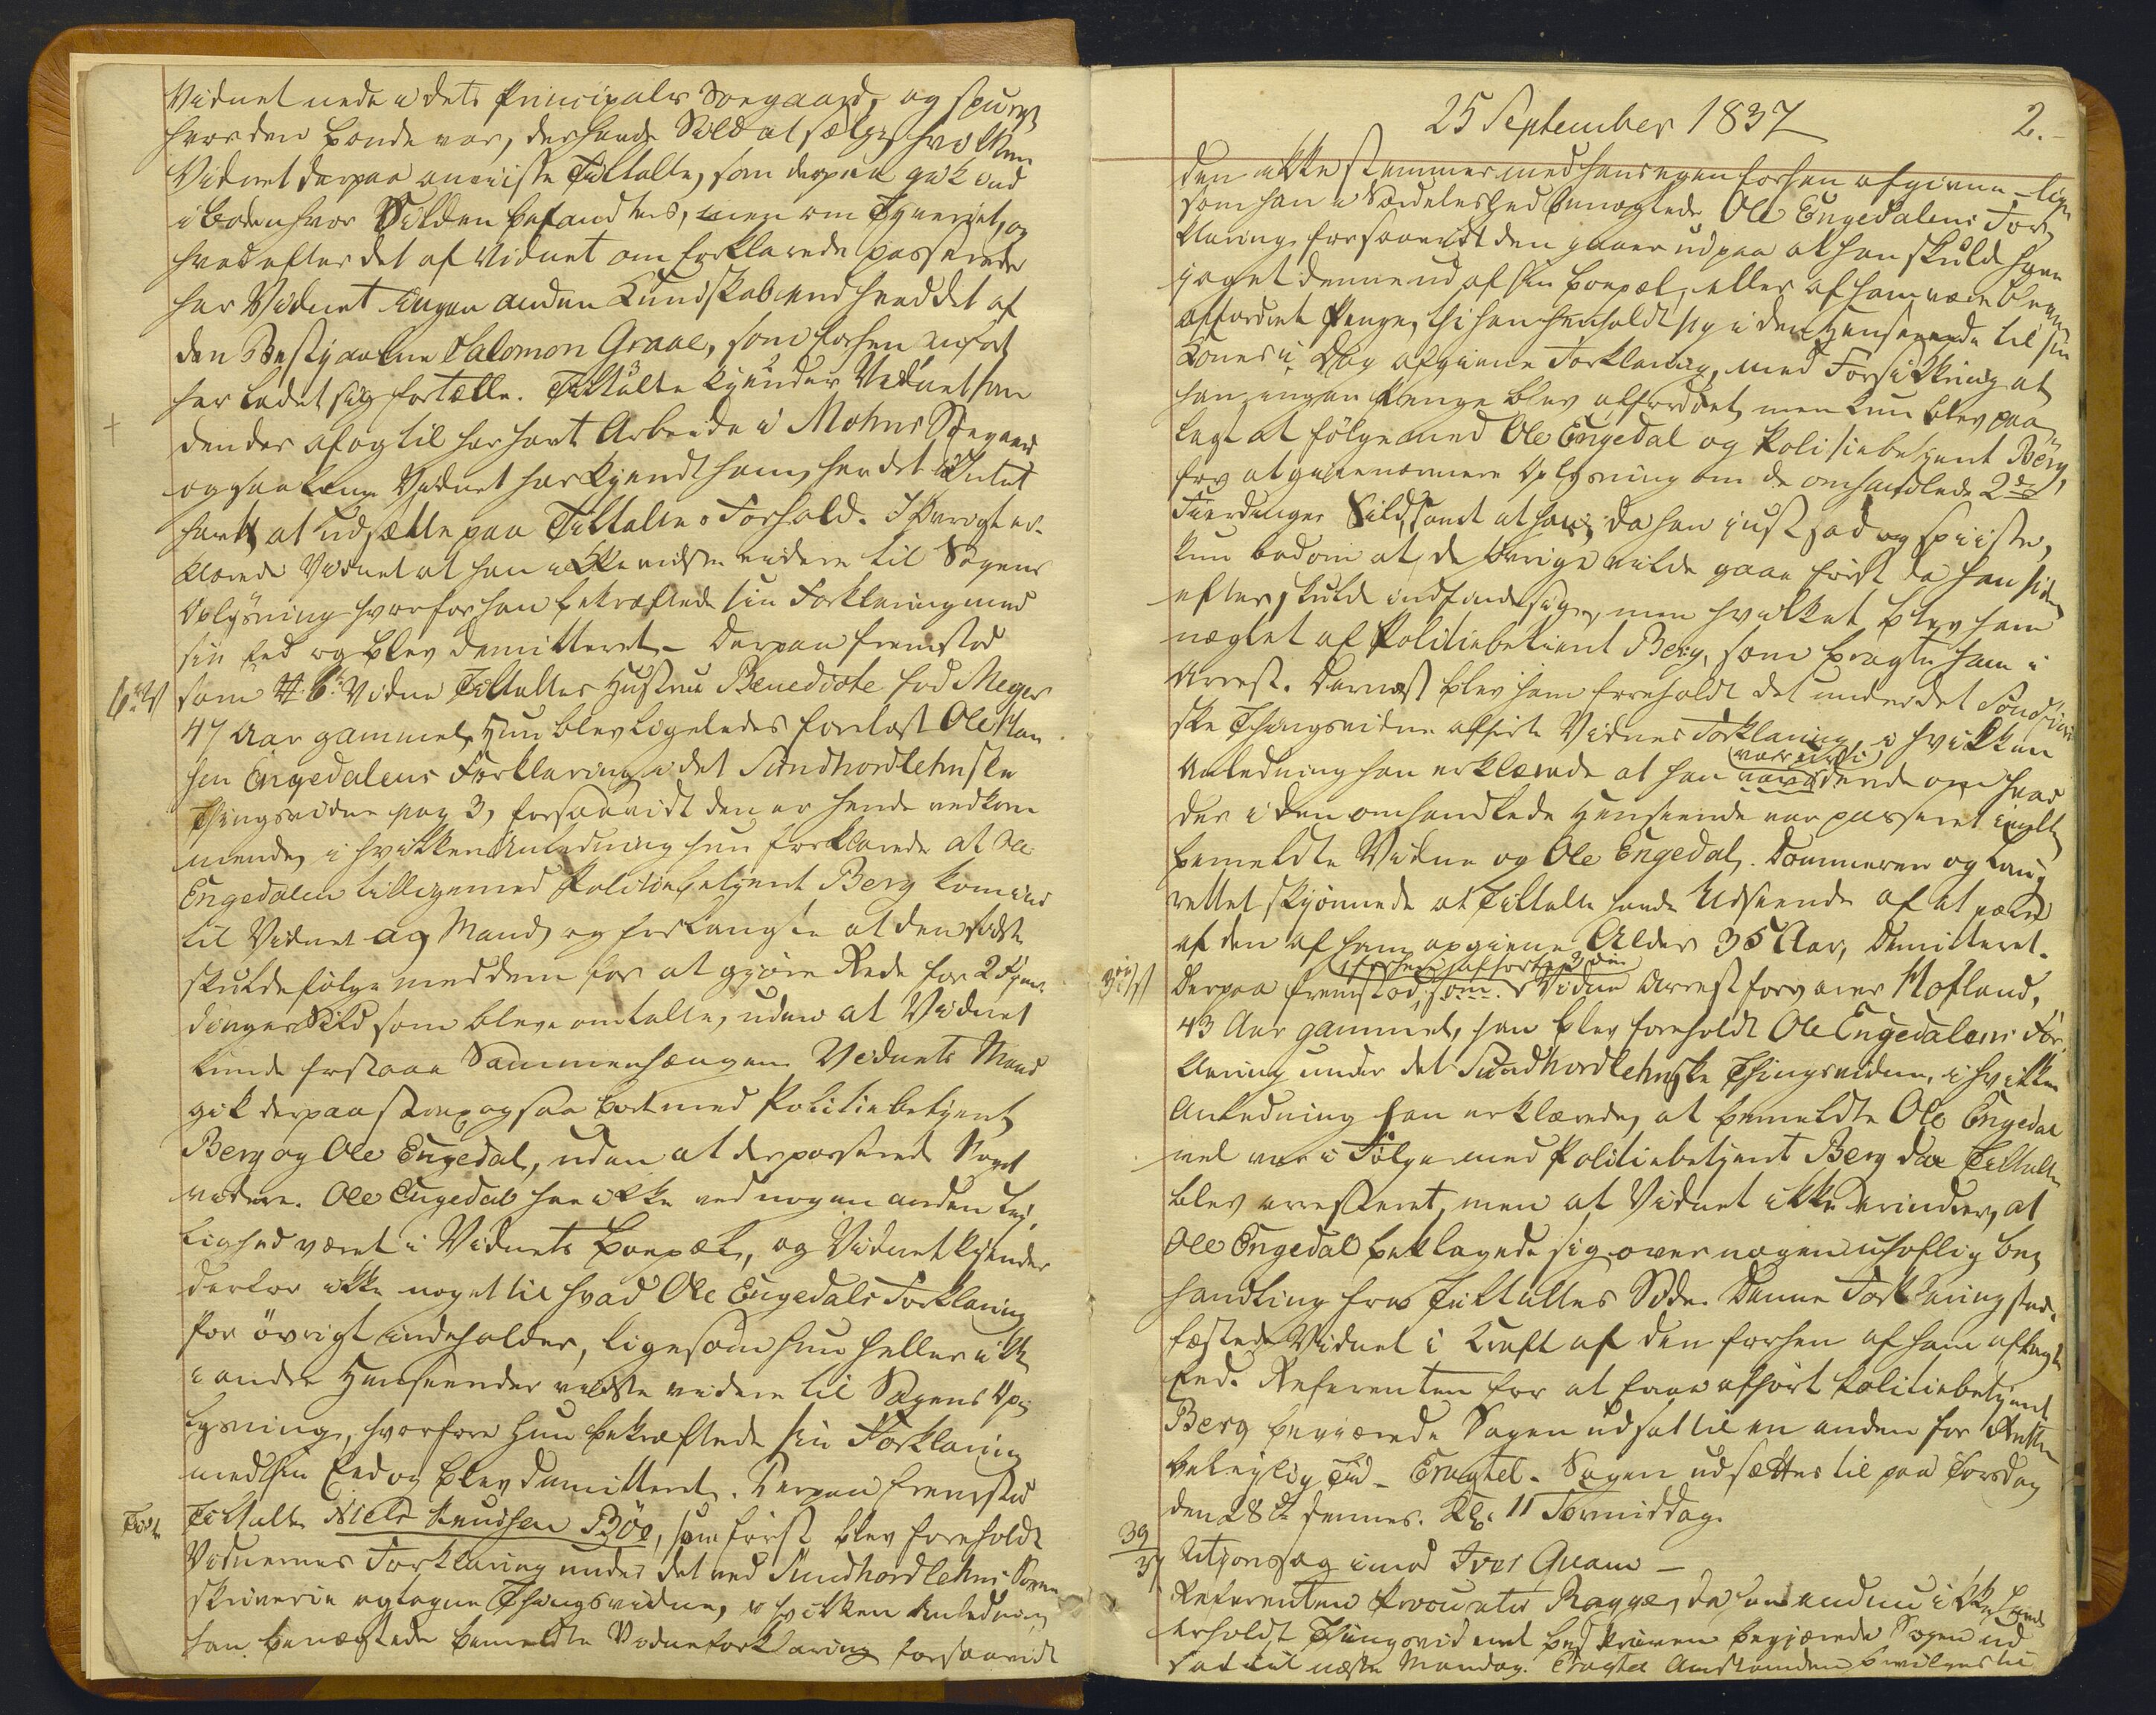 Vidnet nede i dets Principals Søegaard, og spurgt
hvor den Bonde var, der havde Sild at sælge, hvilken
Vidnet derpaa anviiste Tiltalte, som derpaa gik ind
i Boden hvor Silden befandtes, men om Tyveriet, og
hvad efter det af Vidnet om forklarede passerede
har Vidnet ingen anden Kundskab end hvad det af
den Bestjaalne Salomon Graae, som forhen anført
har ladet sig fortælle. Tiltalte kjender Vidnet som
den der af og til har havt Arbeide i Mohns Søegaard
og saalenge Vidnet har kjendt ham, har det Intet
havt at udsætte paa Tiltaltes Forhold. I Øvrigt er-
klærede Vidnet at han ikke vidste videre til Sagens
Oplysning hvorfor han bekræftede sin Forklaring med
sin Eed og blev demitteret – Derpaa fremstod
6te V som 6te Vidne Tiltaltes Hustrue Benedicte fød Meyer
47 Aar gammel, Hun blev ligeledes forelæst Ole Han
sen Engedalens Forklaring i det Sundhordlehnske
Thingsvidne pag 3, forsaavidt den er hende vedkom
mende, i hvilken Anledning hun forklarede at Ole
Engedalen tilligemed Politiebetjent Berg kom ind
til Vidnet og Mand, og forlangte at den sidste
skulde følge med dem for at gjøre Rede for 2 Fjer-
dinger Sild som bleve omtalte, uden at Vidnet
kunde forstaae Sammenhængen. Vidnets Mand
gik derpaa strax ogsaa bort med Politiebetjent
Berg og Ole Engedal, uden at der passerede Noget
videre. Ole Engedal har ikke ved nogen anden Lei-
lighed været i Vidnets Boepæl, og Vidnet kjender
derfor ikke noget til hvad Ole Engedals Forklaring
for øvrigt indeholder, ligesom hun heller ikke
i andre Henseender vidste videre til Sagens Op-
lysning, hvorfore hun bekræftede sin Forklaring
med sin Eed og blev demitteret. Derpaa fremstod
Tiltalte Niels Knudsen Böe, som først blev foreholdt
Vidnernes Forklaring under det ved Sundhordlehns Soren
skriverie optagne Thingsvidne, i hvilken Anledning
han benægtede bemeldte Vidneforklaring forsaavidt
25 September 1837 2.
den ikke stemmer med hans egen forhen afgivne – lige
som han i Særdeleshed benægtede Ole Engedalens For-
klaring forsaavidt den gaaer ud paa at han skulde have
jaget denne ud af sin Boepæl, eller af ham være bleven
affordret Penge, thi han henholdt sig i den Henseende til sin
Kones i Dag afgivne Forklaring, med Forsikkring at
han ingen Penge blev affordret, men kun blev paa
lagt at følge med Ole Engedal og Politiebetjent Berg,
for at give nærmere Oplysning om de omhandlede 2de
Fierdinger Sild, samt at han, da han just sad og spiiste,
kun bad om at de Øvrige vilde gaae først da han siden
efter skulde indfinde sig, men hvilket blev ham
nægtet af Politiebetient Berg, som bragte ham i
Arrest. Dernæst blev ham foreholdt det under det Søndfiord
ske Thingsvidne afhørte Vidnes Forklaring, i hvilken
Anledning han erklærede at han var uvidende om hvad
der i den omhandlede Henseende var passeret imellem
bemeldte Vidne og Ole Engedal. Dommeren og Laug-
rettet skjønnede at Tiltalte havde Udseende af at være
af den af ham opgivne Alder 35 Aar, Demitteret.
Derpaa fremstod, som forhen afhørte 3die Vidne Arrestforvarer Hofland,
43 Aar gammel, han blev foreholdt Ole Engedalens For-
klaring under det Sundhordlehnske Thingsvidne, i hvilken
Anledning han erklærede, at bemeldte Ole Engedal
vel var i Følge med Politiebetjent Berg da Tiltalte
blev arresteret, men at Vidnet ikke erindrer, at
Ole Engedal beklagede sig over nogen uhøflig Be-
handling fra Tiltaltes Side. Denne Forklaring stad-
fæstede Vidnet i Kraft af den forhen af ham aflagte
Eed. Referenten for at faae afhørt Politiebetjent
Berg begjærede Sagen udsat til en anden for Retten
beleilig Tid – Eragtet. Sagen udsættes til paa Torsdag
den 28de dennes Kl. 11 Formiddag.
39/37 Actionssag imod Iver Quam –
Referenten Procurator Ragge, da han endnu ikke havde
erholdt Thingsvidnet beskreven begjærede Sagen ud
sat til næste Mandag. Eragtet Anstanden bevilges til